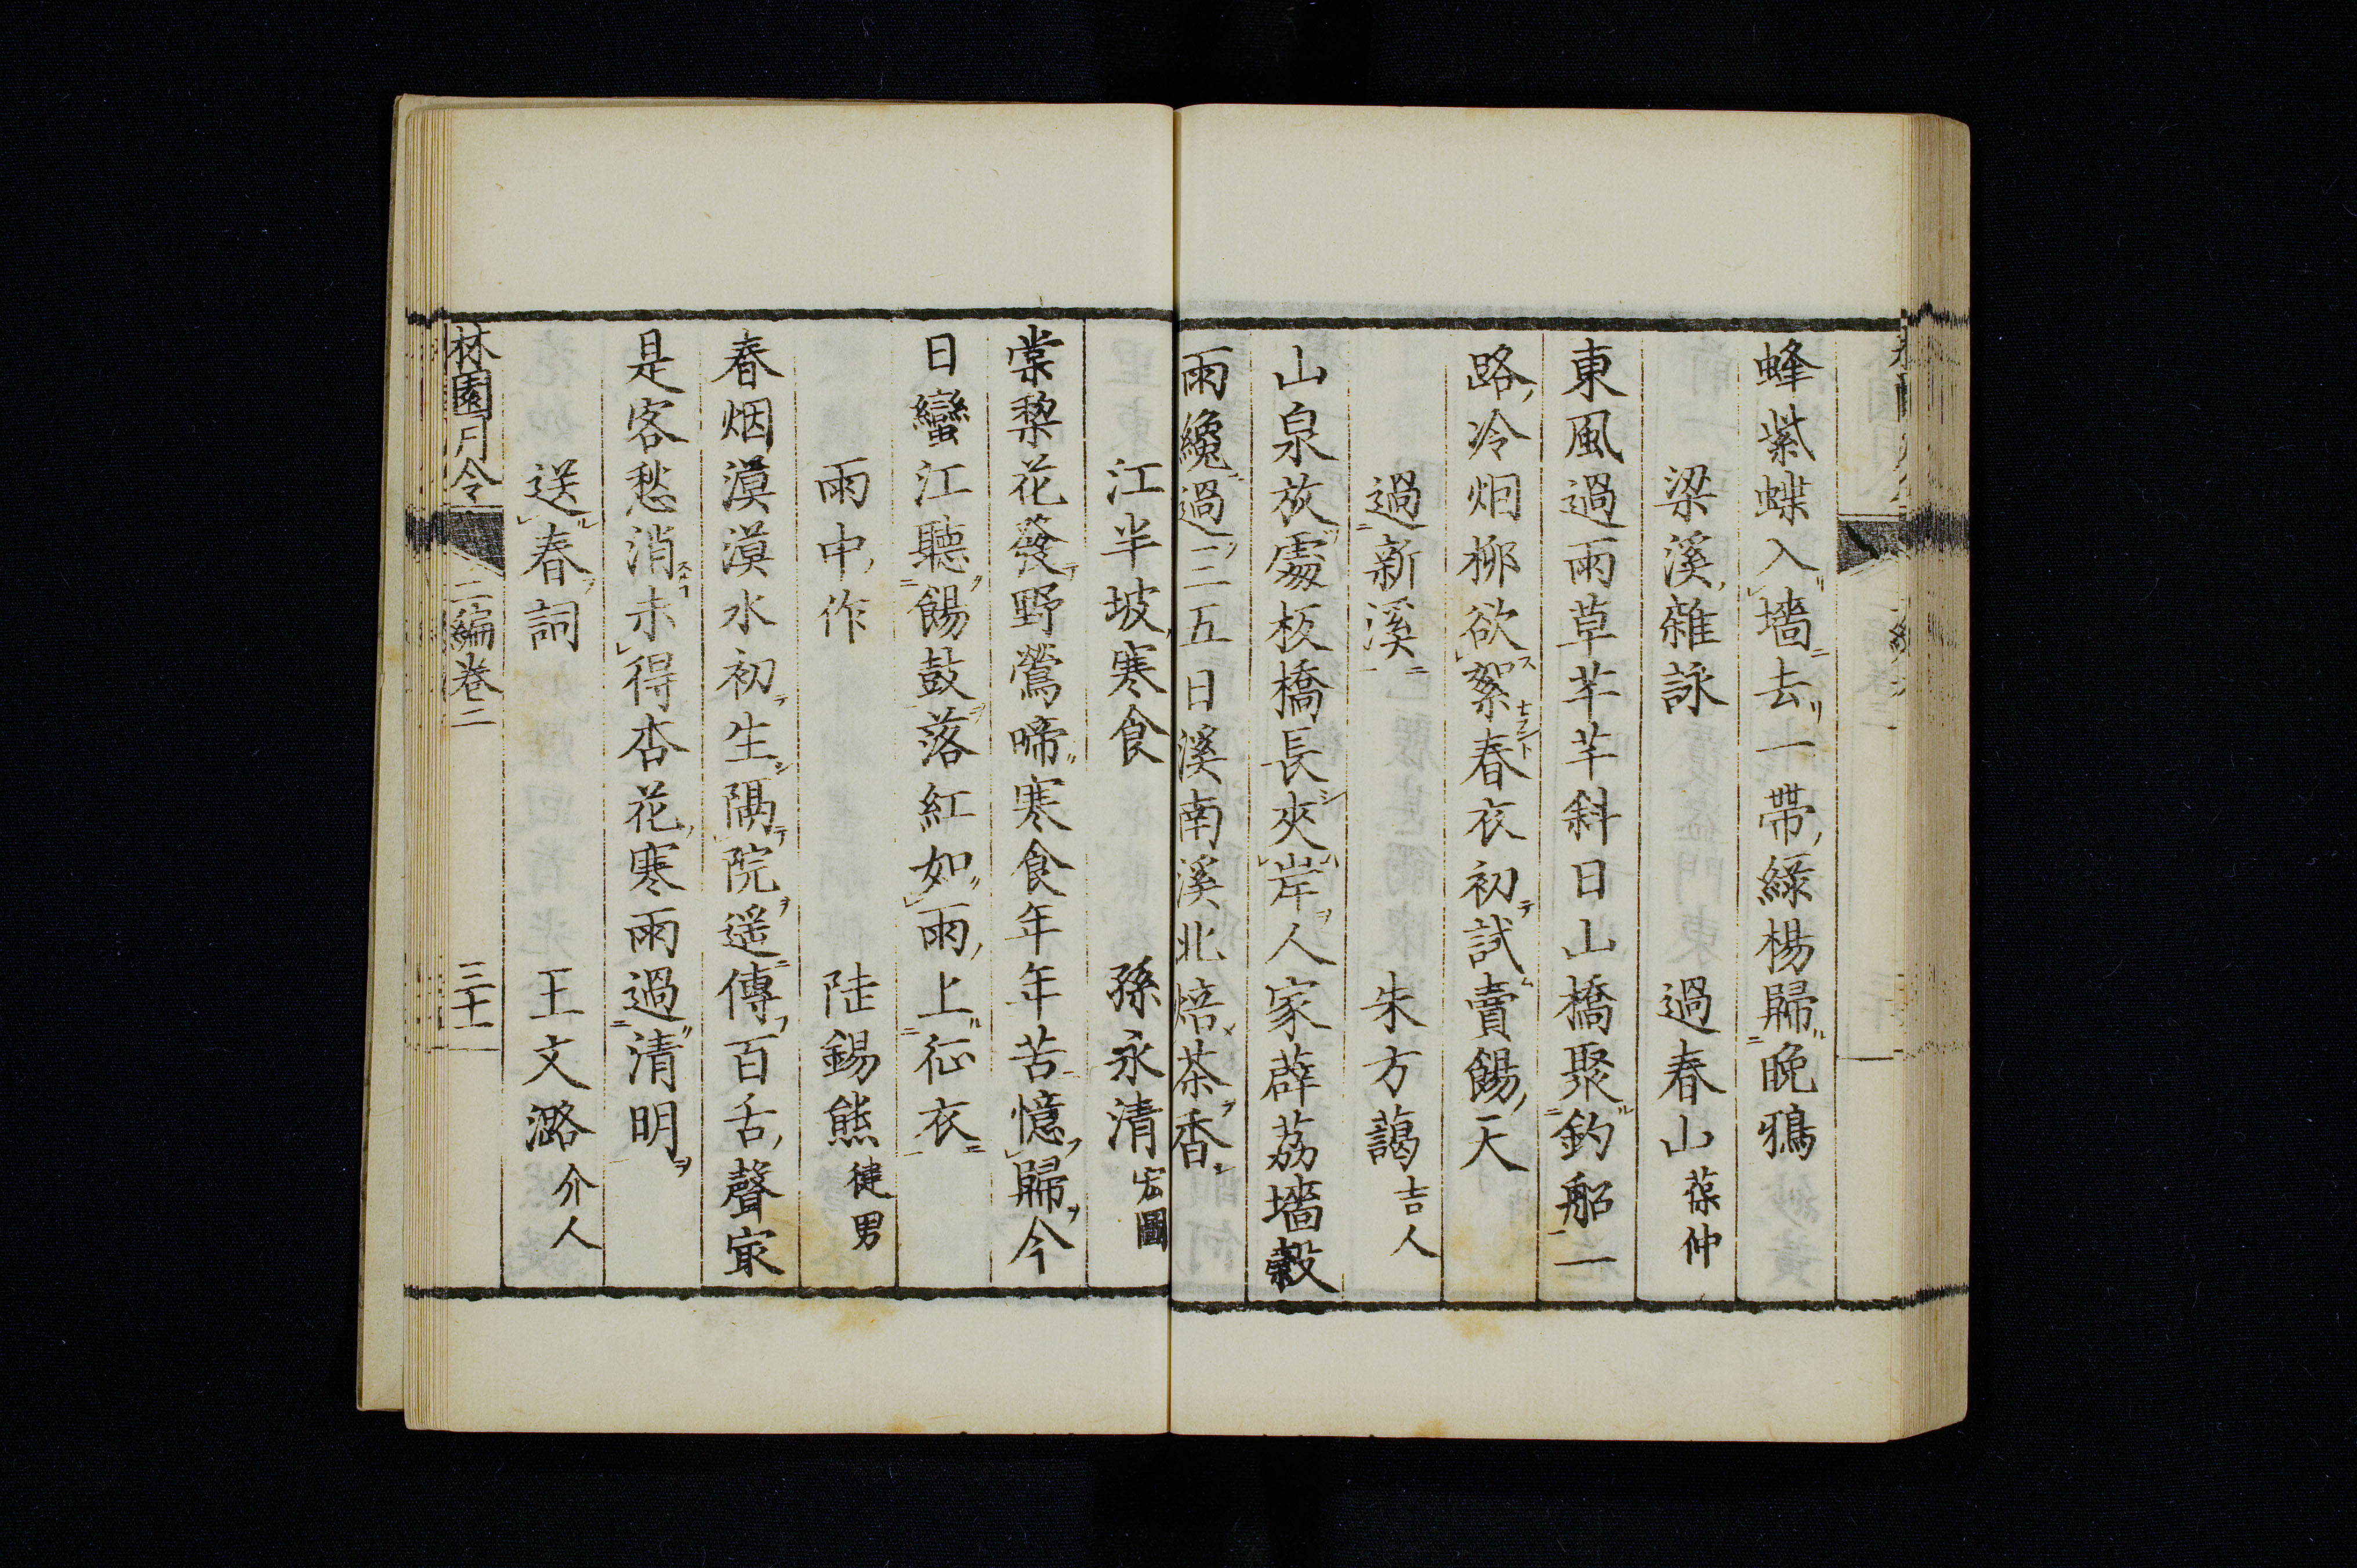 蜂紫蝶入墻去一帶綠楊歸晩鴉
梁溪雜詠 過春山葆仲
東風過雨草芊芊斜日山橋聚釣船一
路冷烟柳欲絮春衣初試賣餳天
過新溪 朱方藹吉人
山泉放處板橋長夾岸人家薜荔墻穀
雨纔過三五日溪南溪北焙茶香
江半坡寒食 孫永清宏圖
棠棃花發野鶯啼寒食年年苦憶歸今
日蠻江聽餳鼓落紅如雨上征衣
雨中作 陸錫熊健男
春烟漠漠水初生隔院遥傳百舌聲㝡
是客愁消未得杏花寒雨過清明
送春詞 王文潞介人
林園月令 二編卷二 三十一